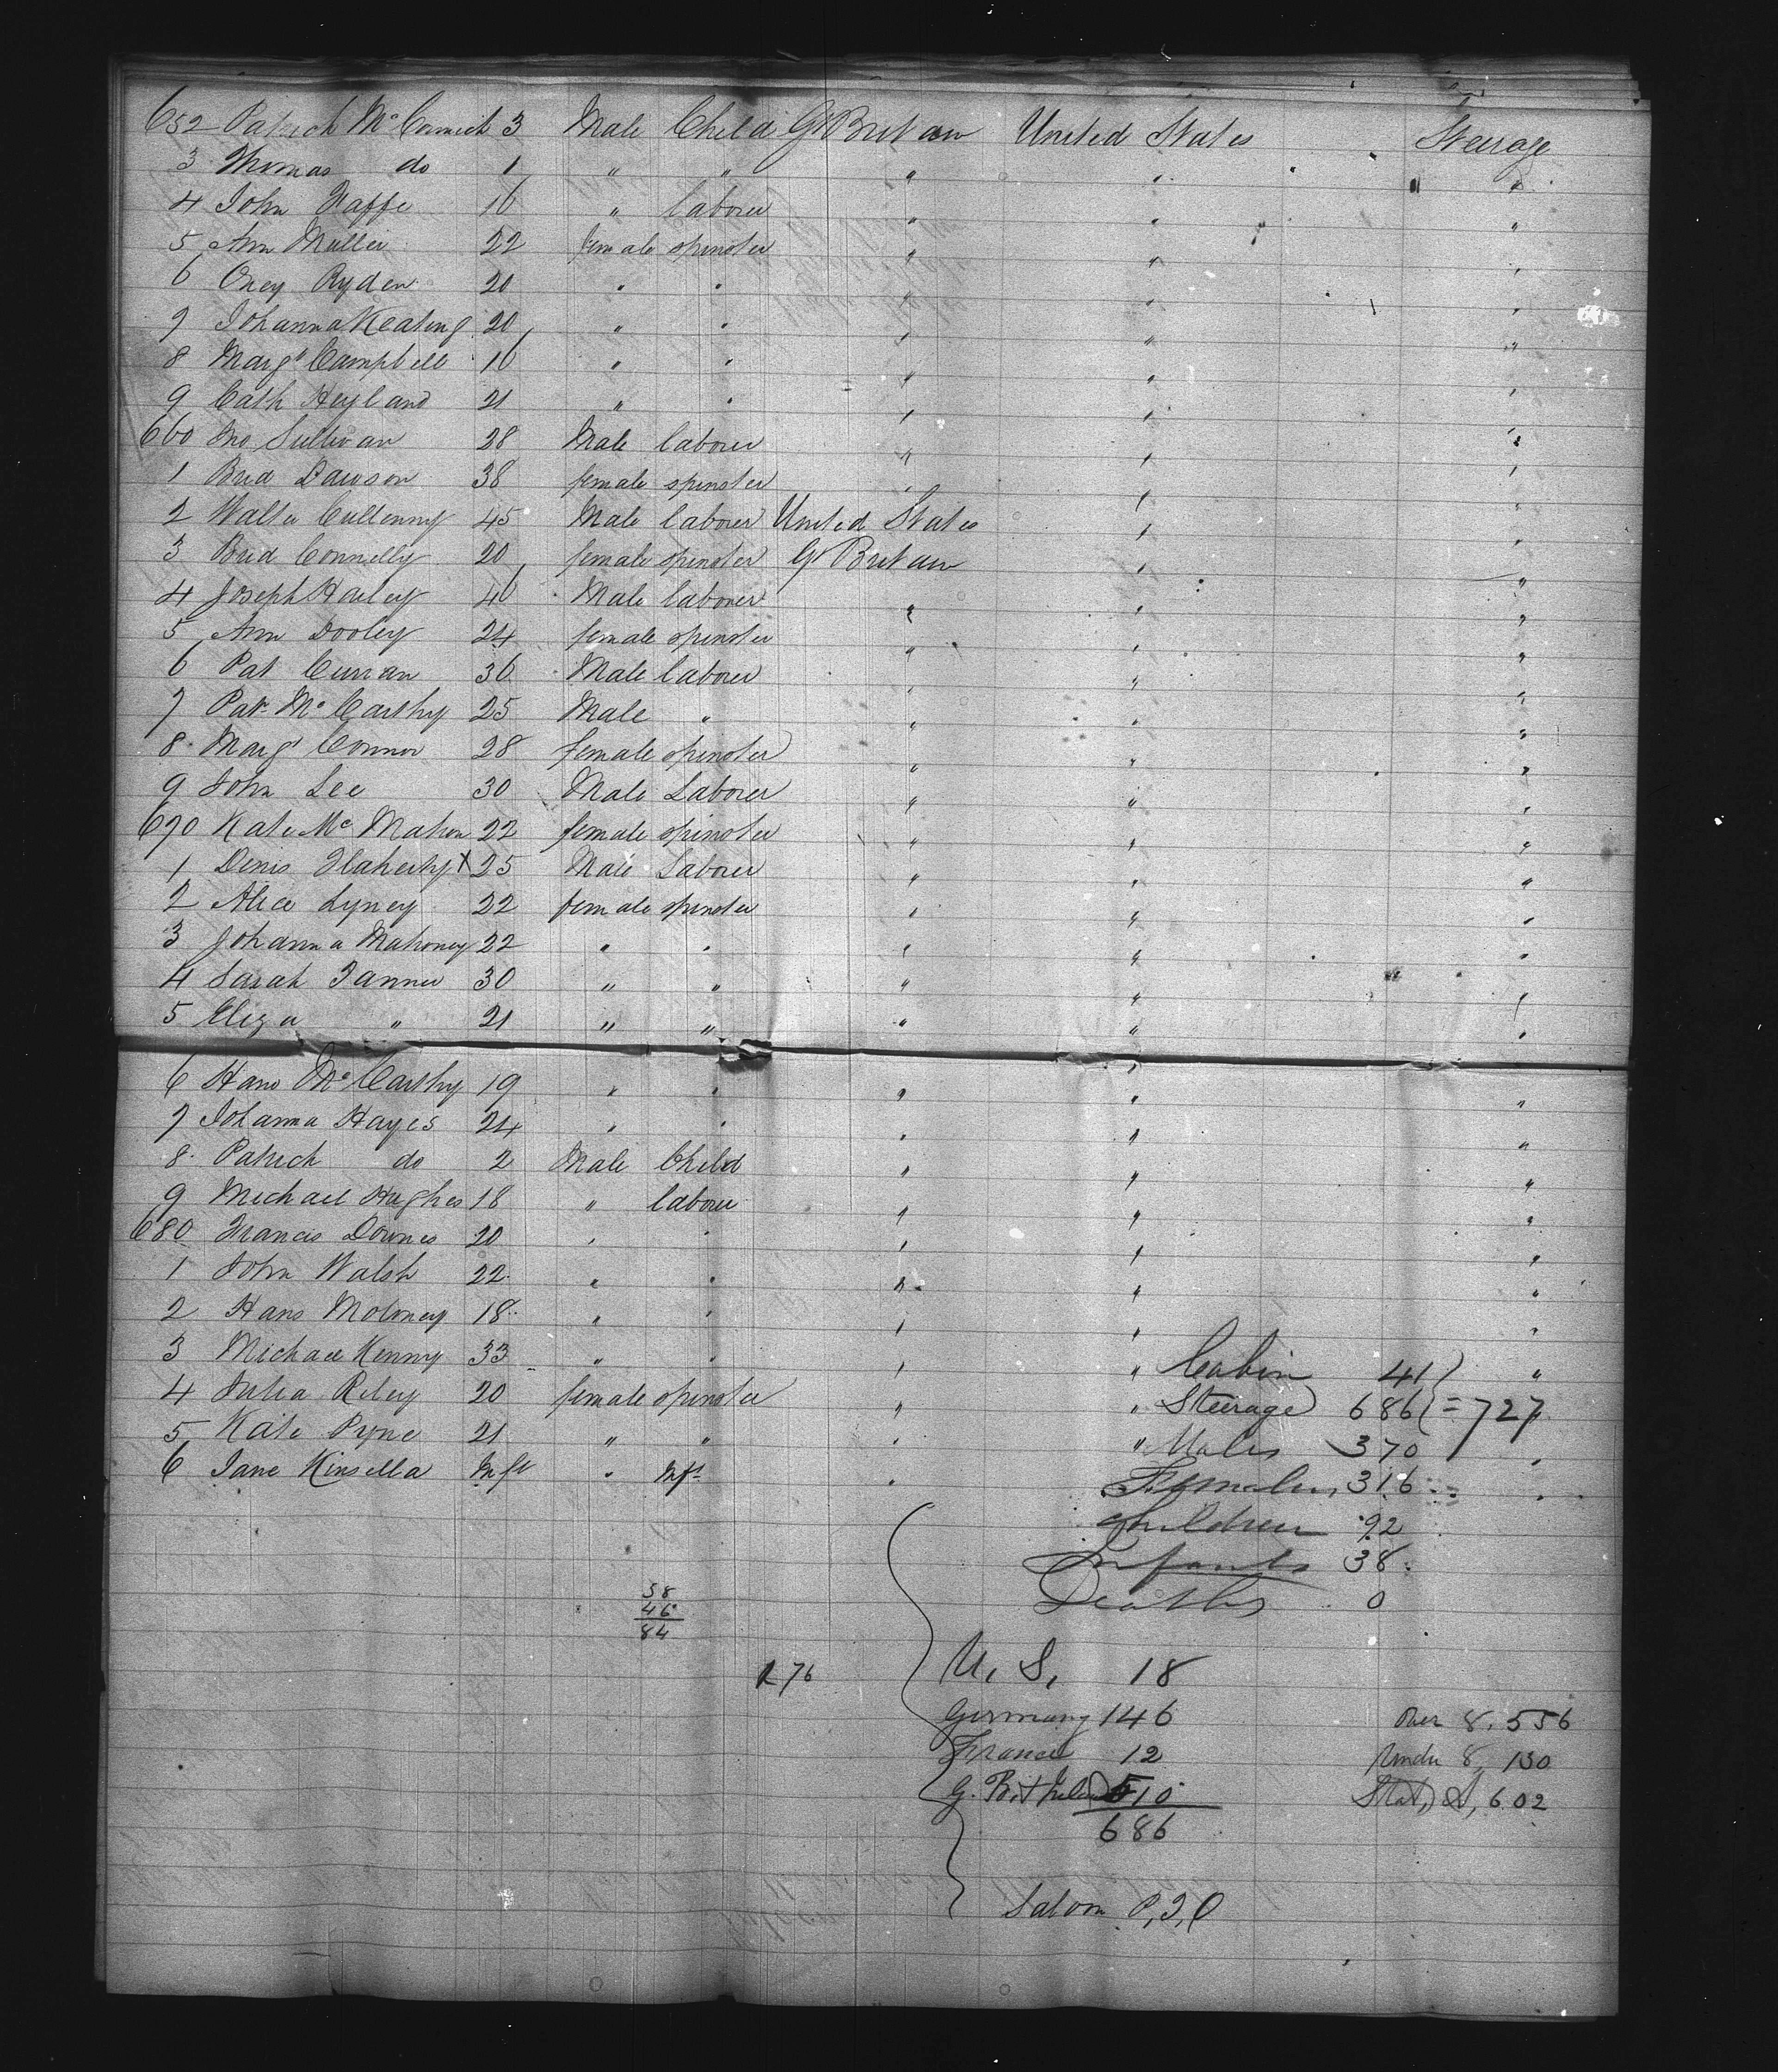 652 Patrick McCormick 3 Male Child Gt Britain United States Steerage
3 Thomas do 1 " " " " "
4 John 16 " laborer " " "
5 Ann Muller 22 female spinster " " "
6 Ryden 20 " " " " "
7 Johanna Keating 20 " " " " "
8 Margt Campbell 16 " " " " "
9 Cath Heyland 21 " " " " "
660 Jno Sullivan 28 Male laborer " " "
1 Brid Dawson 38 female spinster " " "
2 Walter 45 Male laborer United States " "
3 Brid Connelly 20 female spinster Gt Britain " "
4 Joseph Harley 46 Male laborer " " "
5 Ann Dooley 24 female spinster " " "
6 Pat Curran 36 Male laborer " " "
7 Pat McCarthy 25 Male " " " "
8 Margt Connor 28 female spinster " " "
9 John Lee 30 Male Laborer " " "
670 Kate McMahon 22 female spinster " " "
1 Denis Flaherty X 25 Male Laborer " " "
2 Alice Lyney 22 female spinster " " "
3 Johanna Mahoney 22 " " " " "
4 Sarah Tanner 30 " " " " "
5 Eliza " 21 " " " " "
6 Hano McCarthy 19 " " " " "
7 Johanna Hayes 24 " " " " "
8 Patrick do 2 Male Child " " "
9 Michael Hughes 18 " laborer " " "
680 Francis Downes 20 " " " " "
1 John Walsh 22 " " " " "
2 Hano Moloney 18 " " " " "
3 Michael Kenny 33 " " " " Cabin 41 "
4 Julia Riley 20 female spinster " " Steerage 686 = 727 "
5 Kate Pyne 21 " " " " Males 370 "
6 Jane Kinsella Inft " Inft " Females 316 "
Children 92
Infants 38
Deaths 0
38
46
84
U. S. 18
176
Germany 146 Over 8. 556
France 12 Under 8, 130
G. Brit & Ireland 510 602
686
Saloon